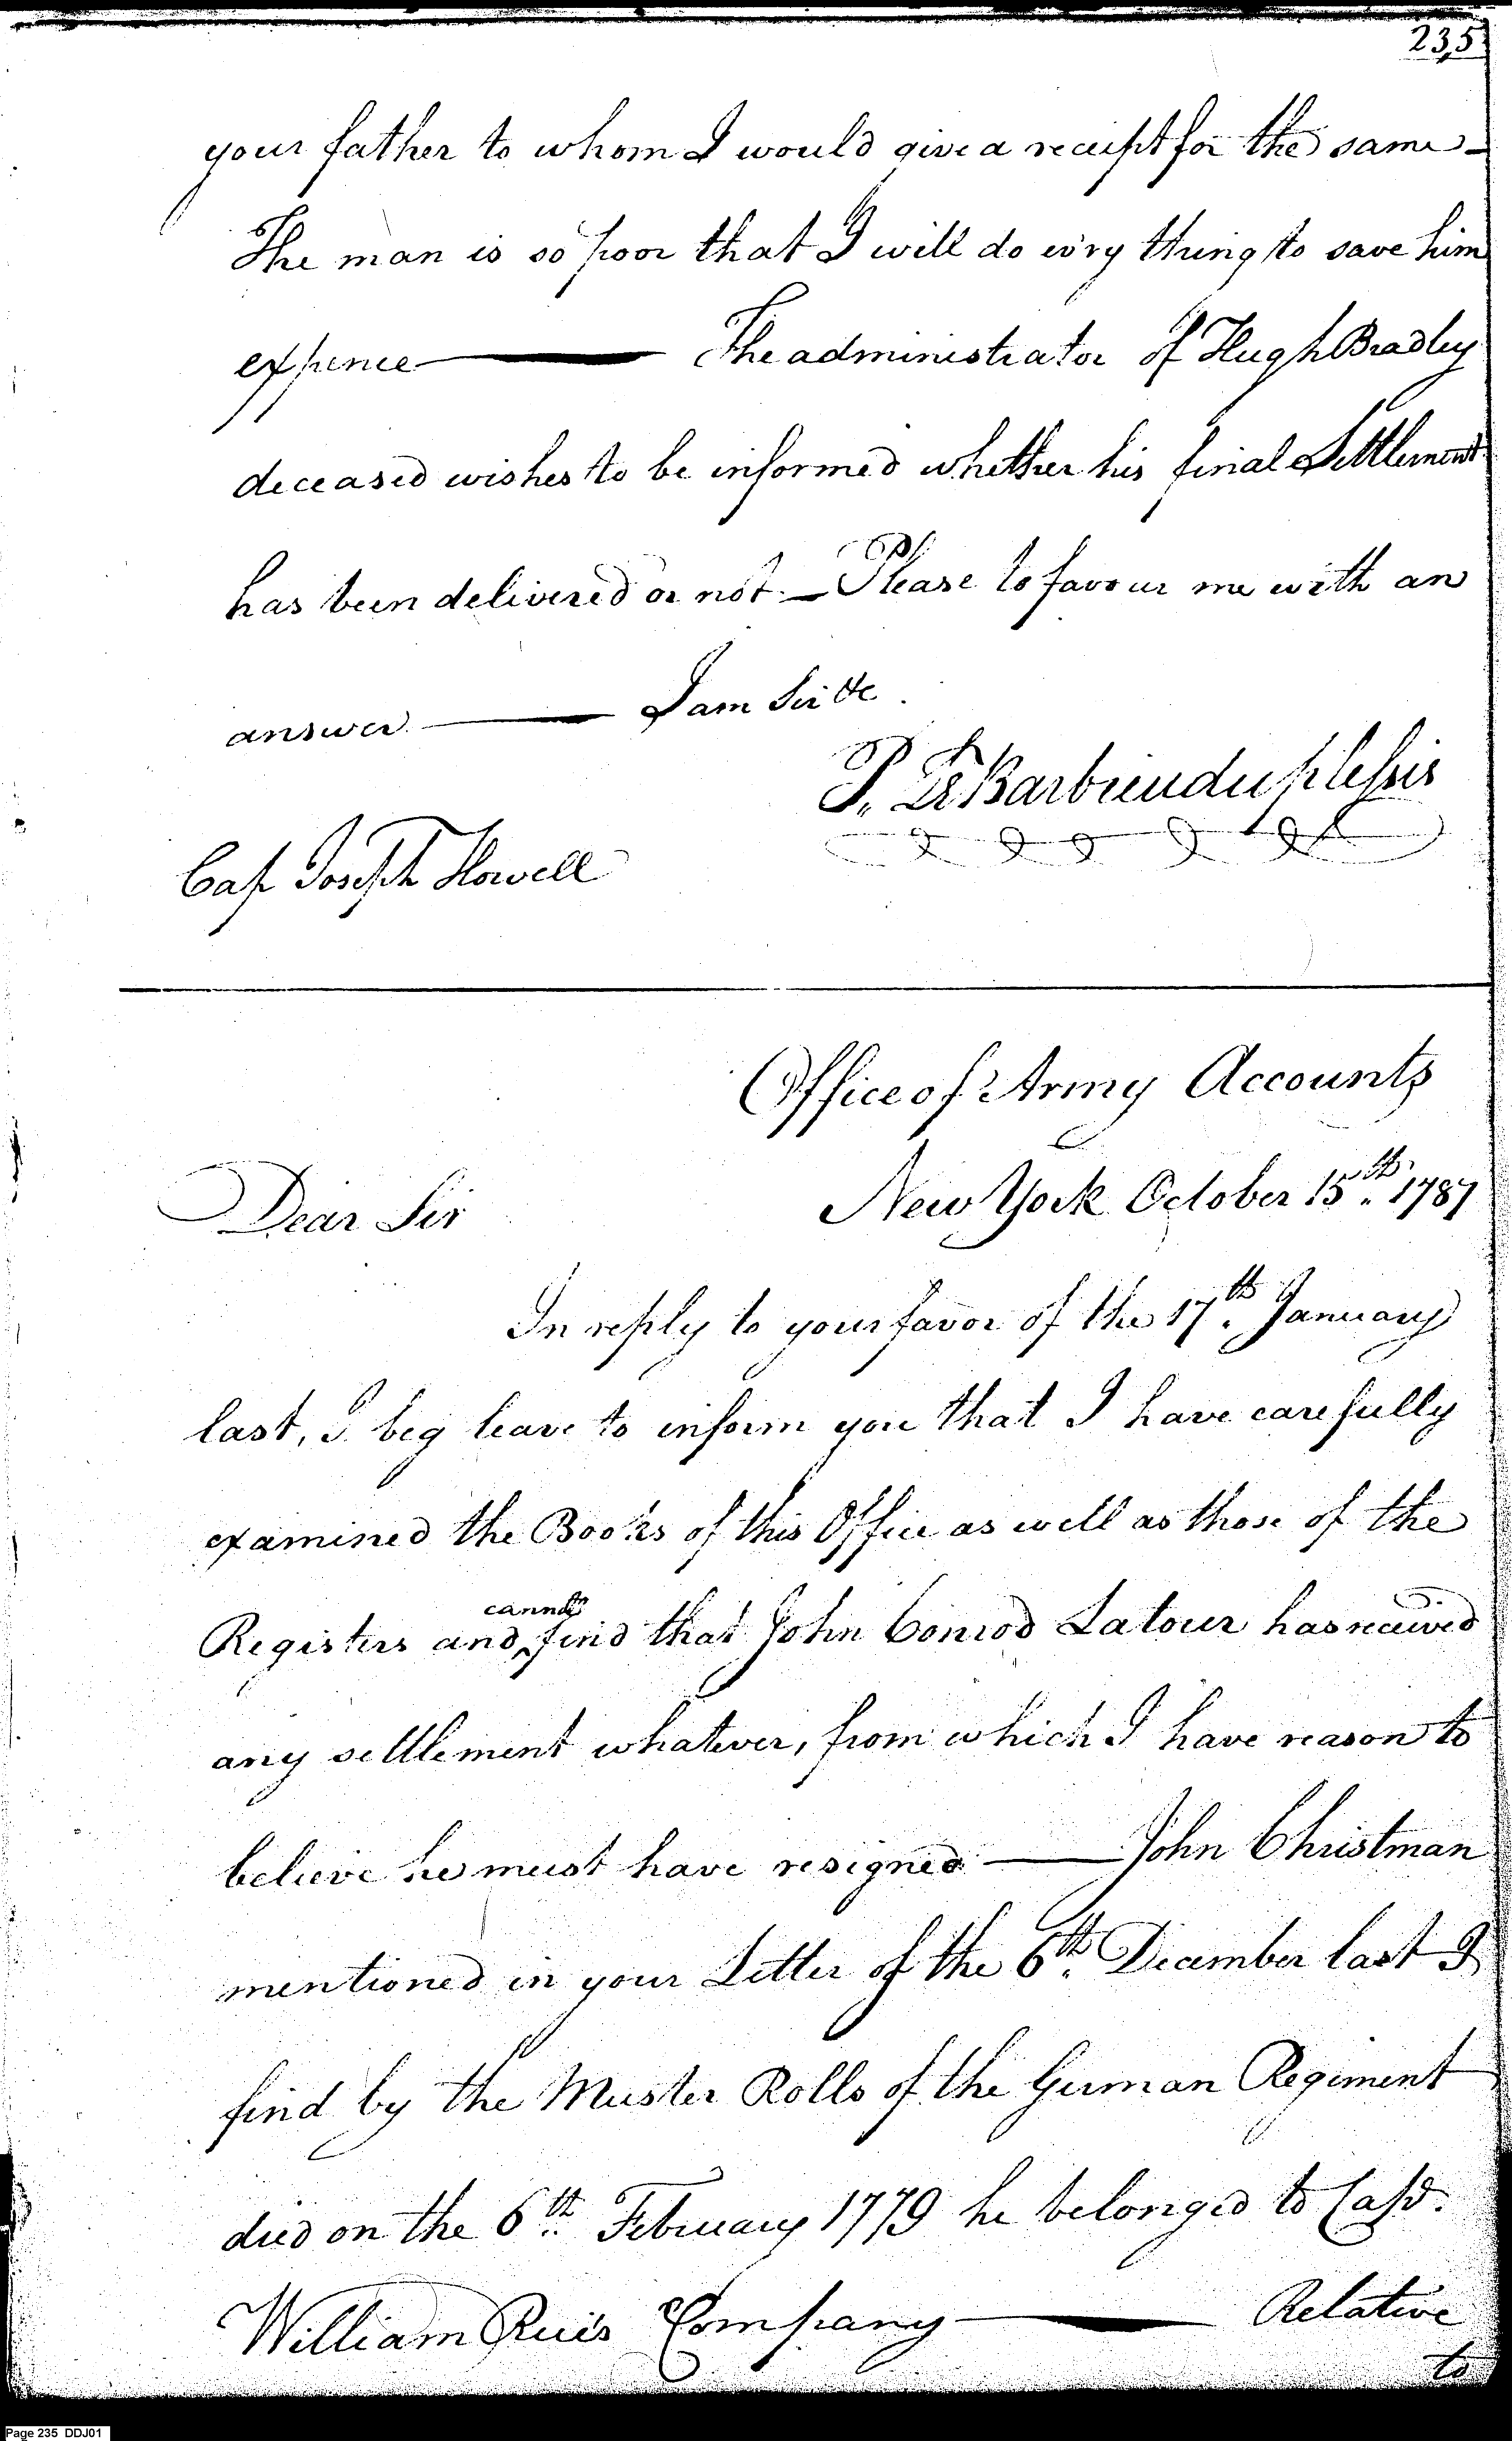 235
your father to whom I would give a receipt for the same -
The man is so poor that I will do ev'ry thing to save him
expence — The administrator of Hugh Bradley
deceased wishes to be informed whether his final Settlement
has been delivered or not. — Please to favour me with an
answer. — I am Sir &c.
P. Le Barbier duplessis
Cap Joseph Howell
Office of Army Accounts
New York October 15th. 1787
Dear Sir
In reply to your favor of the 17th. January
last, I beg leave to inform you that I have carefully
examined the Books of this Office as well as those of the
cannot
Registers and find that John Conrod Latour has received
any settlement whatever, from which I have reason to
believe he must have resigned — John Christman
mentioned in your Letter of the 6th. December last I
find by the Muster Rolls of the German Regiment
died on the 6th. February 1779 he belonged to Capt.
William Rices Company — Relative
to
Page 235 DDJ01